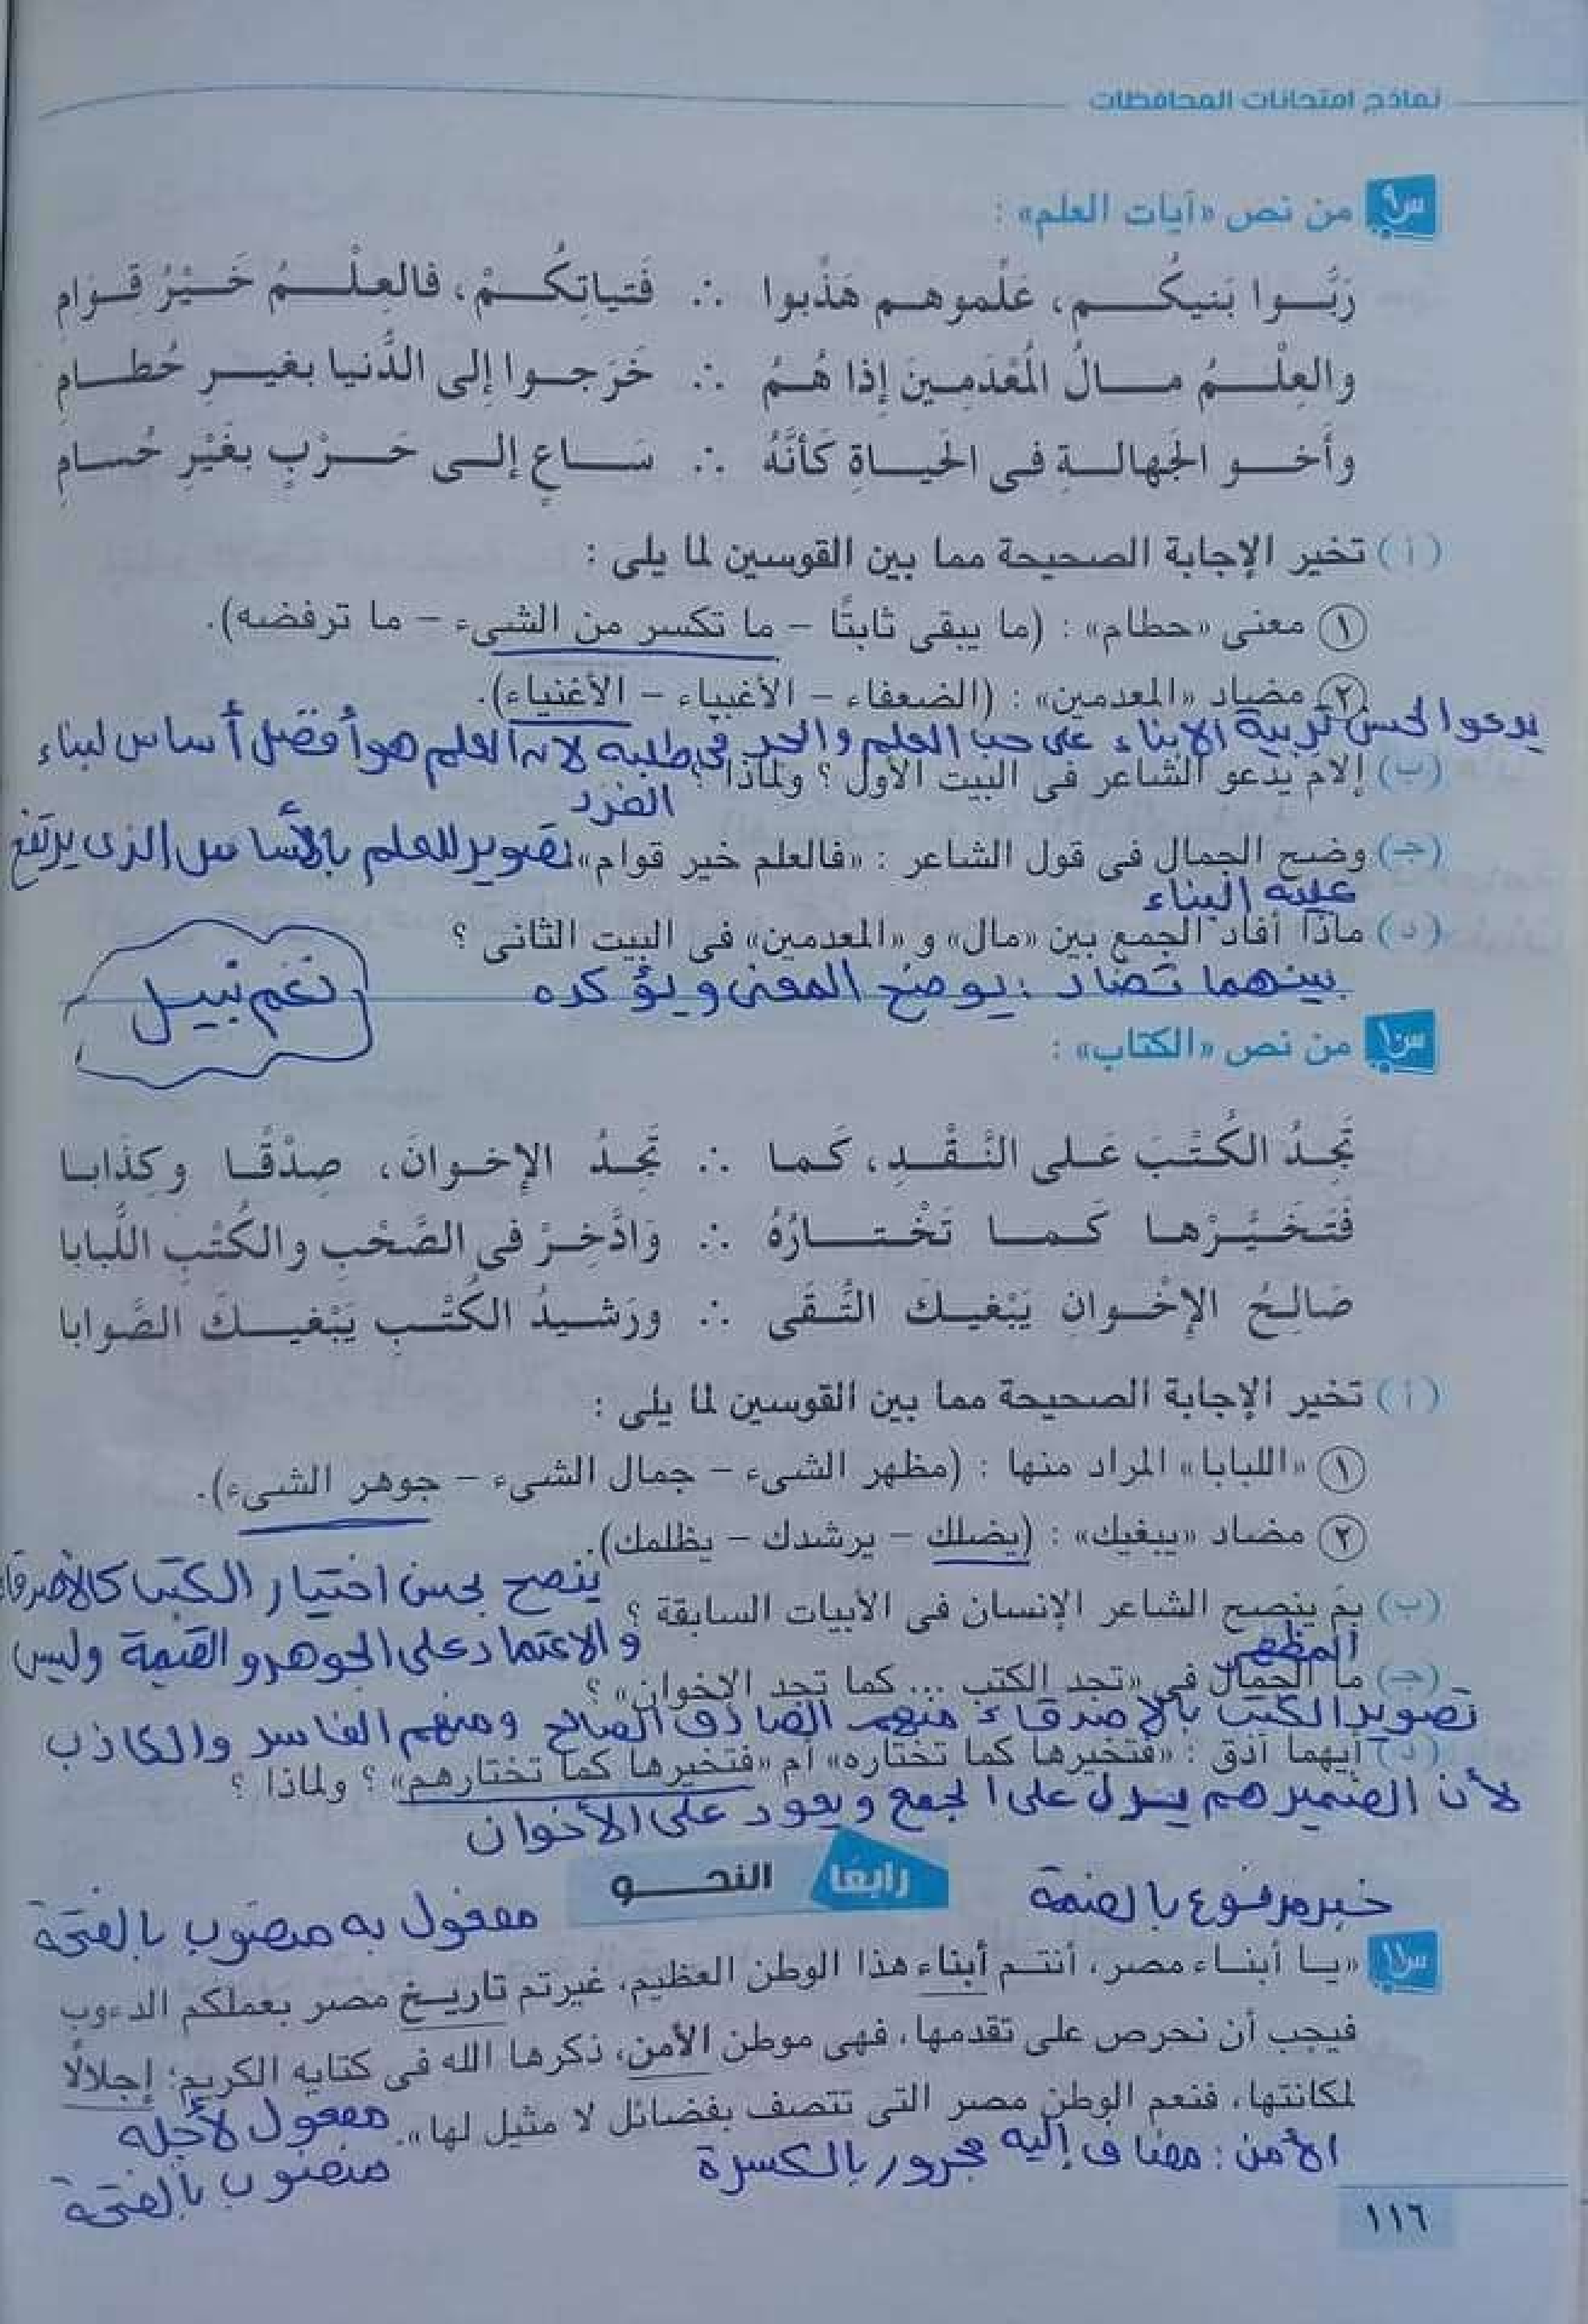 نماذج امتحانات المحافظات
س٩ من نص «آيات العلم» :
رَبُّوا بَنيكُم، عَلِّموهم هَذِّبوا ∴ فَتياتِكُمْ، فالعِلْمُ خَيْرُ قِوَامِ
والعِلْمُ مالُ المُعْدَمِينَ إذا هُمُ ∴ خَرَجوا إلى الدُّنيا بغيرِ حُطامِ
وأَخو الجَهالةِ فى الحَياةِ كَأنَّهُ ∴ سَاعٍ إلى حَرْبٍ بغَيْرِ حُسامِ
(أ) تخير الإجابة الصحيحة مما بين القوسين لما يلى :
١ معنى «حطام» : (ما يبقى ثابتًا – ما تكسر من الشىء – ما ترفضه).
٢ مضاد «المعدمين» : (الضعفاء – الأغبياء – الأغنياء).
يدعوا لحسن تربية الابناء على حب العلم والجد فى طلبه لان العلم هو أفضل أساس لبناء
(ب) إلام يدعو الشاعر فى البيت الأول ؟ ولماذا ؟
الفرد
(جـ) وضح الجمال فى قول الشاعر : «فالعلم خير قوام» تصوير للعلم بالأساس الذى يرتفع
عليه البناء
(د) ماذا أفاد الجمع بين «مال» و «المعدمين» فى البيت الثانى ؟
بينهما تضاد : يوضح المعنى ويؤكده
نغم نبيل
س١٠ من نص «الكتاب» :
تَجِدُ الكُتْبَ عَلى النَّقْدِ، كَما ∴ تَجِدُ الإخوانَ، صِدْقًا وكِذَابا
فَتَخَيَّرْها كَما تَخْتارُهُ ∴ وَادَّخِرْ فى الصَّحْبِ والكُتْبِ اللُّبابا
صَالِحُ الإخْوانِ يَبْغيكَ التُّقَى ∴ ورَشيدُ الكُتْبِ يَبْغيكَ الصَّوابا
(أ) تخير الإجابة الصحيحة مما بين القوسين لما يلى :
١ «اللبابا» المراد منها : (مظهر الشىء – جمال الشىء – جوهر الشىء).
٢ مضاد «يبغيك» : (يضلك – يرشدك – يظلمك).
ينصح بحسن اختيار الكتب كالأصدقاء
(ب) بمَ ينصح الشاعر الإنسان فى الأبيات السابقة ؟
والاعتماد على الجوهر والقيمة وليس
المظهر
(جـ) ما الجمال فى «تجد الكتب ... كما تجد الإخوان» ؟
تصوير الكتب بالأصدقاء منهم الصادق الصالح ومنهم الفاسد والكاذب
(د) أيهما أدق : «فتخيرها كما تختاره» أم «فتخيرها كما تختارهم» ؟ ولماذا ؟
لأن الضمير هم يدل على الجمع ويعود على الأخوان
رابعًا النحو
خبر مرفوع بالضمة
مفعول به منصوب بالفتحة
س١١ «يا أبناء مصر، أنتم أبناء هذا الوطن العظيم، غيرتم تاريخ مصر بعملكم الدءوب
فيجب أن نحرص على تقدمها، فهى موطن الأمن، ذكرها الله فى كتابه الكريم؛ إجلالًا
لمكانتها، فنعم الوطن مصر التى تتصف بفضائل لا مثيل لها».
مفعول لأجله
منصوب بالفتحة
الأمن : مضاف إليه مجرور بالكسرة
١١٦